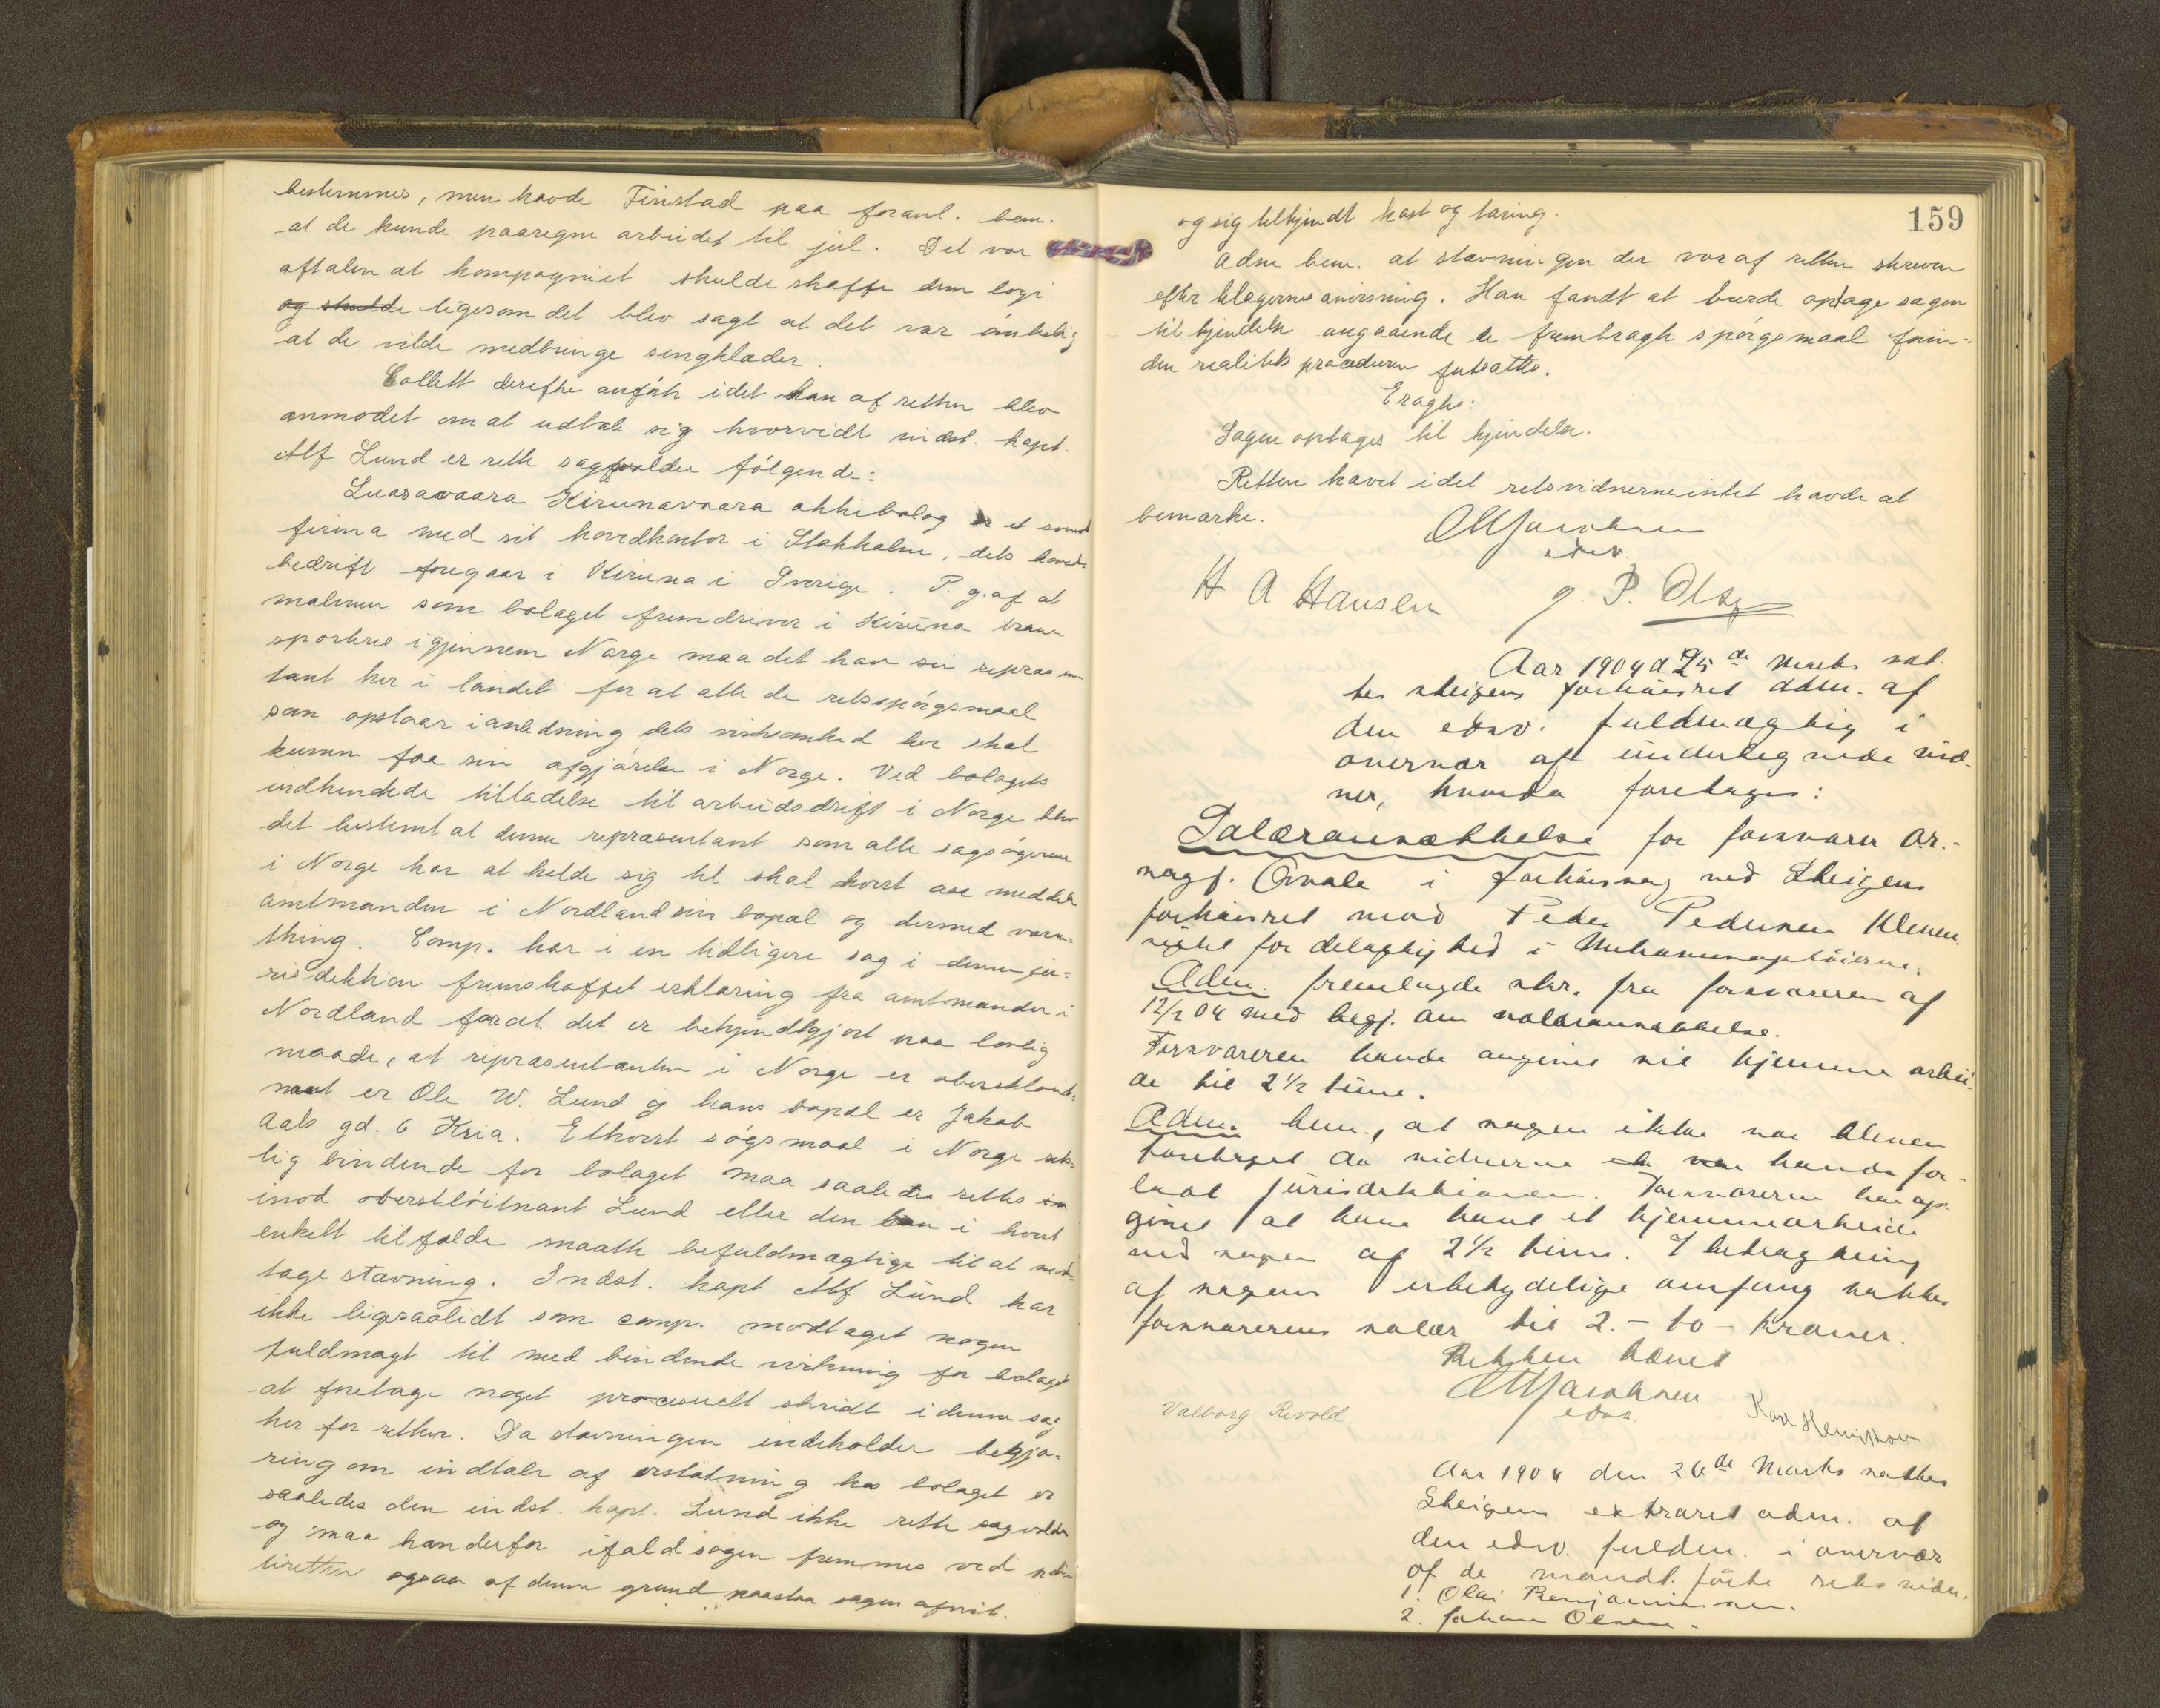 bestemmes, men havde Finstad paa foranl. bem.
at de kunde paaregne arbeidet til jul. Det var
aftalen at kompagniet skulde skaffe dem logi
og skulde ligesom det blev sagt at det var ønskelig
at de vilde medbringe sengklæder.
Collett derefter anførte idet han af retten blev
anmodet om at udtale sig hvorvidt indst. kapt.
Alf Lund er rette sagvolder følgende:
Luosavaara Kirunavaara aktiebolag er et svensk
firma med sit hovedkontor i Stokholm, dets hoved-
bedrift foregaar i Kiruna i Sverige. P. g. af at
malmen som bolaget fremdriver i Kiruna tran-
sporteres igjennem Norge maa det have sin repræsen-
tant her i landet for at alle de retsspørgsmaal
som opstaar i anledning dets virksomhed her skal
kunne faa sin afgjørelse i Norge. Ved bolagets
indhentede tilladelse til arbeidsdrift i Norge blev
det bestemt at denne repræsentant som alle sagsøgerne
i Norge har at holde sig til skal hvert aar meddele
amtmanden i Nordland sin bopæl og dermed værne-
thing. Comp. har i en tidligere sag i denne ju-
risdiktion fremskaffet erklæring fra amtmanden i
Nordland for at det er bekjendtgjort paa lovlig
maade, at repræsentanten i Norge er oberstløit-
nant er Ole W. Lund og hans bopæl er Jakob
Aals gd. 6 Kria. Ethvert søgsmaal i Norge ret-
lig bindende for bolaget maa saaledes rettes
imod oberstløitnant Lund eller den han i hvert
enkelt tilfælde maatte befuldmægtige til at mod-
tage stævning. Indst. kapt Alf Lund har
ikke ligesaalidt som comp. modtaget nogen
fuldmagt til med bindende virkning for bolaget
at foretage noget processuelt skridt i denne sag
her for retten. Da stævningen indeholder begjæ-
ring om indtale af erstatning hos bolaget er
saaledes den indst. kapt. Lund ikke rette sagvolder
og maa han derfor ifald sagen fremmes ved
ogsaa af denne grund paastaa sagen afvist.
og sig tilkjendt kost og tæring.
159
Adm bem. at stævningen der var af retten skreven
efter klagernes anvisning. Han fandt at burde optage sagen
til kjendelse angaaende de frembragte spørgsmaal forin-
den realitets proceduren fortsattes.
Eragtes:
Sagen optages til kjendelse.
Retten hævet idet retsvidnerne intet havde at
bemærke.
Jacobsen
edsv.
H A Hansen
P. Olsen
Aar 1904 d. 25de Marts sat-
tes Steigens forhørsret adm. af
den edsv. fuldmægtig i
overvær af undertegnede vid-
ner, hvorda foretages:
Salæransættelse for forsvarer or.-
sagf. i forhørssag ved Steigens
forhørsret mod Peder Pedersen Kleven
sigtet for delagtighed i
Adm. fremlagde skr. fra forsvareren af
12/2 04 med begj. om salæransættelse.
Forsvareren havde angivet sit hjemmearbei-
de til 2 1/2 time.
Adm. bem., at sagen ikke var bleven
foretaget da vidnerne havde for-
ladt jurisdiktionen. Forsvareren har op-
givet at have havt et hjemmearbeide
ved sagen af 2 1/2 time. I betragtning
af sagens ubetydelige omfang sættes
forsvarerens salær til 2.- to - kroner.
Retten hævet
Jacobsen
edsv.
Valborg Revold.
Aar 1904 den 26de Marts sattes
Steigens extraret adm. af
den edsv. fuldm. i overvær
af de mandt. førte retsvidn.
1. Olai Benjaminsen.
2. Johan Olsen.